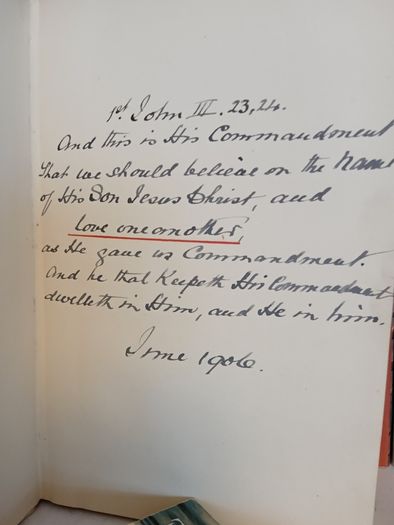 1st. John III. 23, 24.
And this is His Commandment
That we should believe on the Name
of His Son Jesus Christ, and
love one another,
as He gave us Commandment.
And he that Keepeth His Commandment
dwelleth in Him, and He in him.
June 1906.